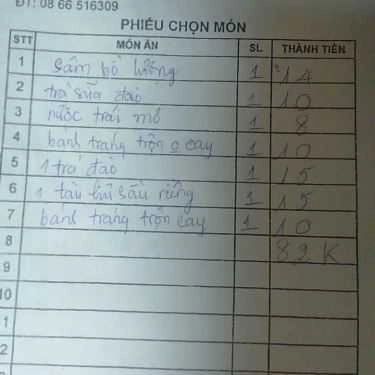 ĐT: 08 66 516309
PHIẾU CHỌN MÓN
STT MÓN ĂN SL. THÀNH TIỀN
1 Sâm bổ lượng 1 14
2 trà sữa đào 1 10
3 nước trái mơ 1 8
4 bánh tráng trộn o cay 1 10
5 1 trà đào 1 15
6 1 tàu hủ sầu riêng 1 15
7 bánh tráng trộn cay 1 10
8 82K
9
10
1
2